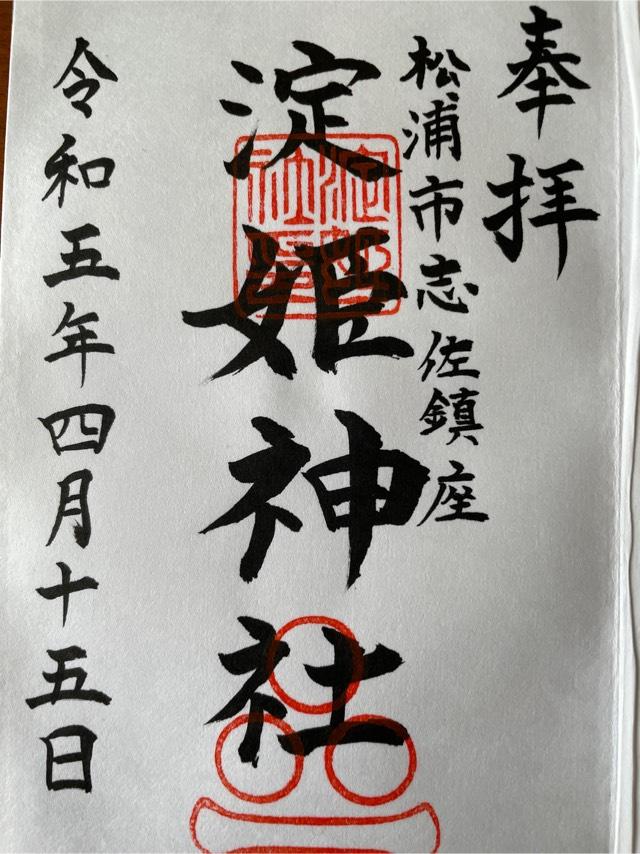 奉拝
松浦市志佐鎮座
淀姫神社
令和五年四月十五日